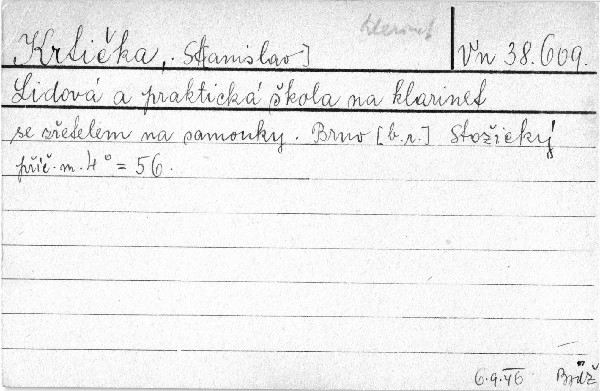 klarinet
Krtička, S[tanislav] Vn 38.609.
Lidová a praktická škola na klarinet
se zřetelem na samouky. Brno [b.r.] Stožický
příč. m. 4° = 56.
6.9.46